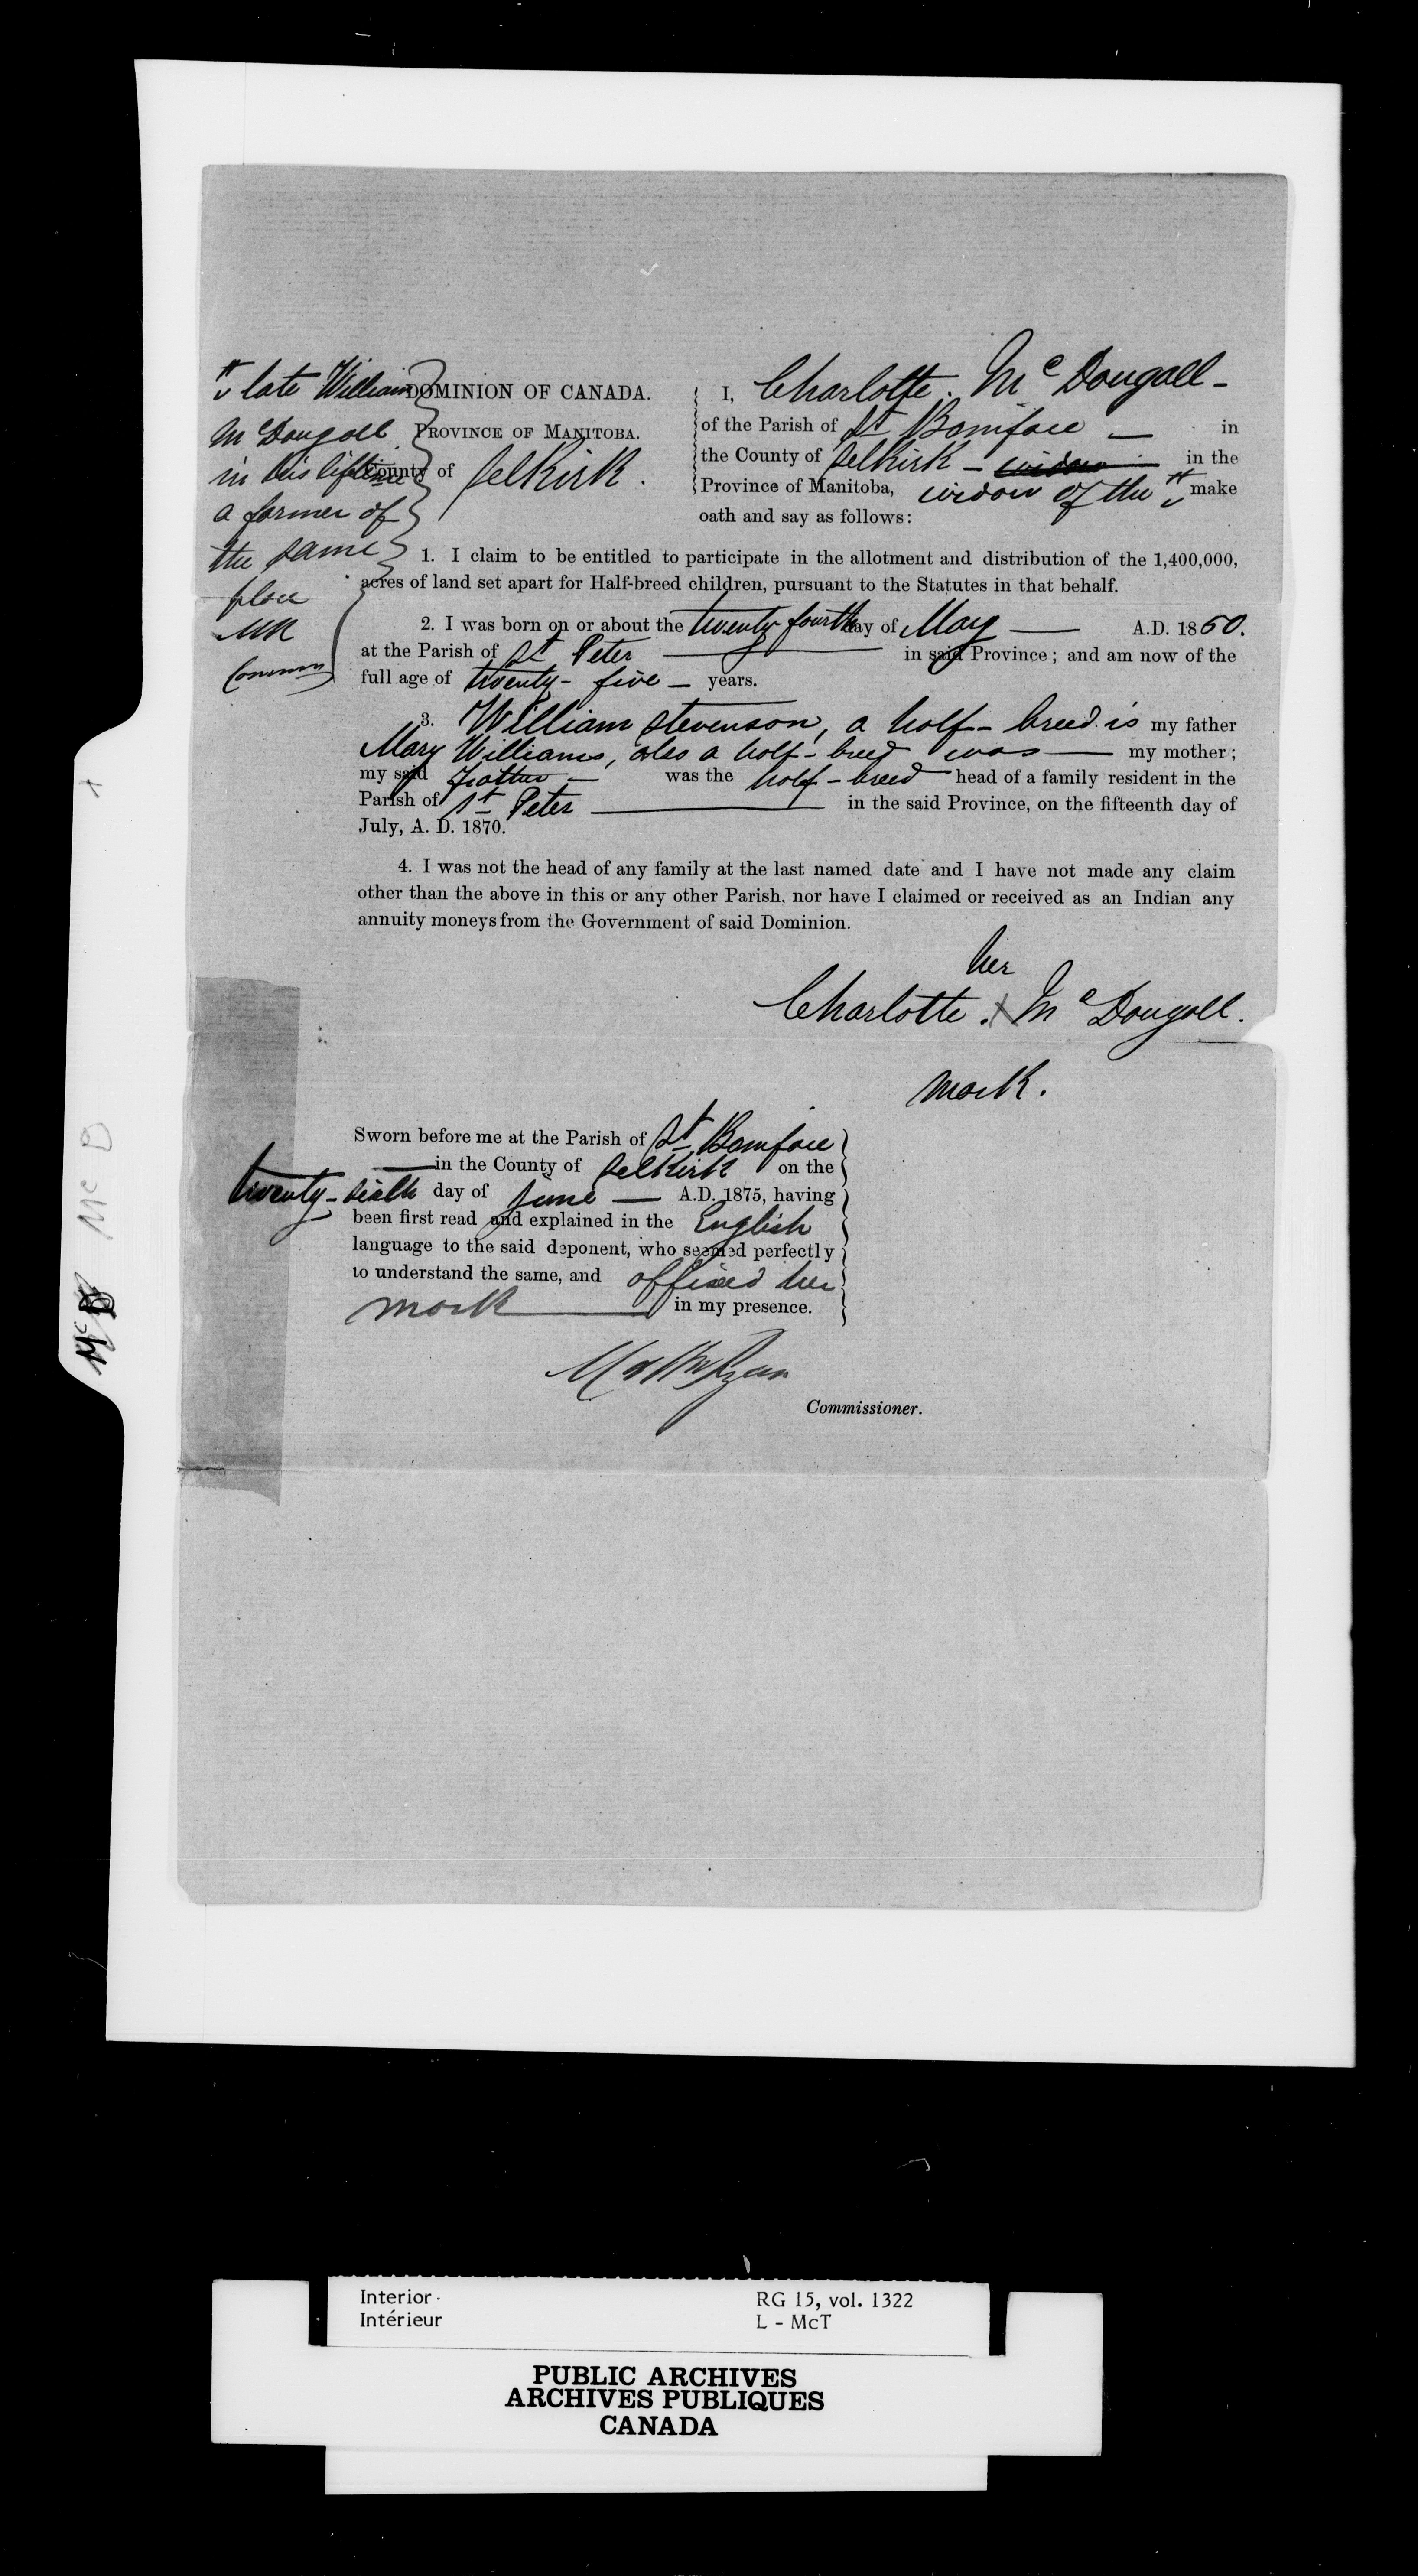 # late William
McDougall
in his lifetime
a farmer of
the same
place
MR
Commr
DOMINION OF CANADA.
PROVINCE OF MANITOBA.
County of Selkirk.
I, Charlotte McDougall -
of the Parish of St Boniface — in
the County of Selkirk - widow in the
Province of Manitoba, widow of the # make
oath and say as follows:
1. I claim to be entitled to participate in the allotment and distribution of the 1,400,000,
acres of land set apart for Half-breed children, pursuant to the Statutes in that behalf.
2. I was born on or about the twenty fourth day of May — A.D. 1850.
at the Parish of St Peter — in said Province; and am now of the
full age of twenty-five — years.
3. William Stevenson, a half-breed is my father
Mary Williams, also a half-breed was — my mother;
my said Father — was the half-breed head of a family resident in the
Parish of St Peter — in the said Province, on the fifteenth day of
July, A. D. 1870.
4. I was not the head of any family at the last named date and I have not made any claim
other than the above in this or any other Parish, nor have I claimed or received as an Indian any
annuity moneys from the Government of said Dominion.
her
Charlotte X McDougall.
mark.
Sworn before me at the Parish of St Boniface
— in the County of Selkirk on the
twenty-sixth day of June — A.D. 1875, having
been first read and explained in the English
language to the said deponent, who seemed perfectly
to understand the same, and affixed her
mark — in my presence.
Matt Ryan
Commissioner.
McD
McD
Interior
Intérieur
RG 15, vol. 1322
L - McT
PUBLIC ARCHIVES
ARCHIVES PUBLIQUES
CANADA